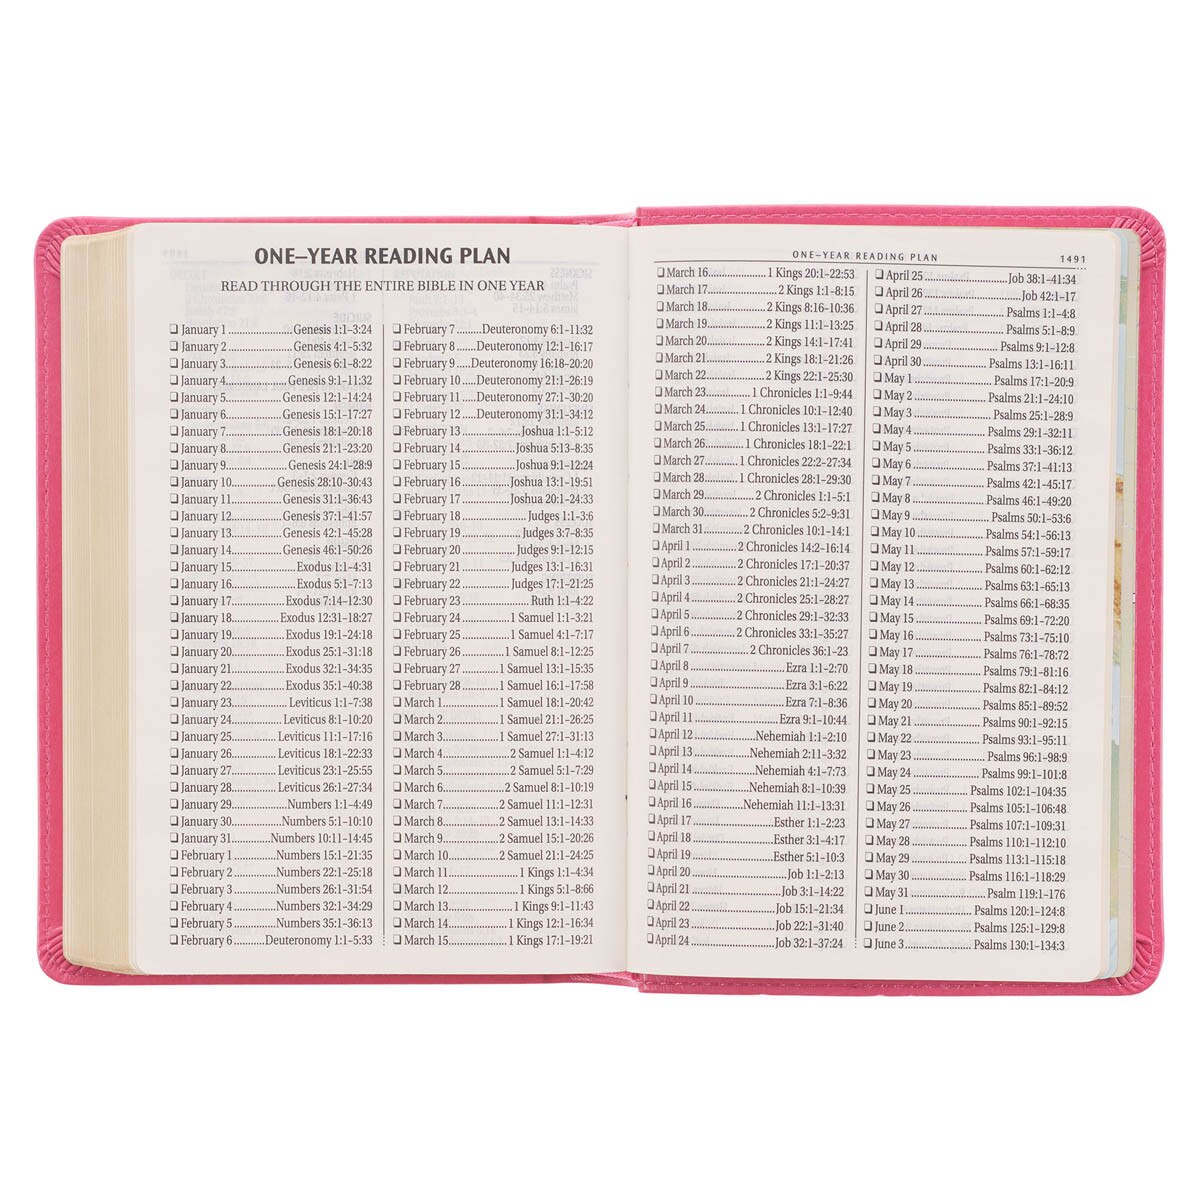 ONE–YEAR READING PLAN
READ THROUGH THE ENTIRE BIBLE IN ONE YEAR
❏ January 1 ................ Genesis 1:1–3:24
❏ January 2 ................ Genesis 4:1–5:32
❏ January 3 ................ Genesis 6:1–8:22
❏ January 4 ................ Genesis 9:1–11:32
❏ January 5 ................ Genesis 12:1–14:24
❏ January 6 ................ Genesis 15:1–17:27
❏ January 7 ................ Genesis 18:1–20:18
❏ January 8 ................ Genesis 21:1–23:20
❏ January 9 ................ Genesis 24:1–28:9
❏ January 10 ................ Genesis 28:10–30:43
❏ January 11 ................ Genesis 31:1–36:43
❏ January 12 ................ Genesis 37:1–41:57
❏ January 13 ................ Genesis 42:1–45:28
❏ January 14 ................ Genesis 46:1–50:26
❏ January 15 ................ Exodus 1:1–4:31
❏ January 16 ................ Exodus 5:1–7:13
❏ January 17 ................ Exodus 7:14–12:30
❏ January 18 ................ Exodus 12:31–18:27
❏ January 19 ................ Exodus 19:1–24:18
❏ January 20 ................ Exodus 25:1–31:18
❏ January 21 ................ Exodus 32:1–34:35
❏ January 22 ................ Exodus 35:1–40:38
❏ January 23 ................ Leviticus 1:1–7:38
❏ January 24 ................ Leviticus 8:1–10:20
❏ January 25 ................ Leviticus 11:1–17:16
❏ January 26 ................ Leviticus 18:1–22:33
❏ January 27 ................ Leviticus 23:1–25:55
❏ January 28 ................ Leviticus 26:1–27:34
❏ January 29 ................ Numbers 1:1–4:49
❏ January 30 ................ Numbers 5:1–10:10
❏ January 31 ................ Numbers 10:11–14:45
❏ February 1 ................ Numbers 15:1–21:35
❏ February 2 ................ Numbers 22:1–25:18
❏ February 3 ................ Numbers 26:1–31:54
❏ February 4 ................ Numbers 32:1–34:29
❏ February 5 ................ Numbers 35:1–36:13
❏ February 6 ................ Deuteronomy 1:1–5:33
❏ February 7 ................ Deuteronomy 6:1–11:32
❏ February 8 ................ Deuteronomy 12:1–16:17
❏ February 9 ................ Deuteronomy 16:18–20:20
❏ February 10 ................ Deuteronomy 21:1–26:19
❏ February 11 ................ Deuteronomy 27:1–30:20
❏ February 12 ................ Deuteronomy 31:1–34:12
❏ February 13 ................ Joshua 1:1–5:12
❏ February 14 ................ Joshua 5:13–8:35
❏ February 15 ................ Joshua 9:1–12:24
❏ February 16 ................ Joshua 13:1–19:51
❏ February 17 ................ Joshua 20:1–24:33
❏ February 18 ................ Judges 1:1–3:6
❏ February 19 ................ Judges 3:7–8:35
❏ February 20 ................ Judges 9:1–12:15
❏ February 21 ................ Judges 13:1–16:31
❏ February 22 ................ Judges 17:1–21:25
❏ February 23 ................ Ruth 1:1–4:22
❏ February 24 ................ 1 Samuel 1:1–3:21
❏ February 25 ................ 1 Samuel 4:1–7:17
❏ February 26 ................ 1 Samuel 8:1–12:25
❏ February 27 ................ 1 Samuel 13:1–15:35
❏ February 28 ................ 1 Samuel 16:1–17:58
❏ March 1 ................ 1 Samuel 18:1–20:42
❏ March 2 ................ 1 Samuel 21:1–26:25
❏ March 3 ................ 1 Samuel 27:1–31:13
❏ March 4 ................ 2 Samuel 1:1–4:12
❏ March 5 ................ 2 Samuel 5:1–7:29
❏ March 6 ................ 2 Samuel 8:1–10:19
❏ March 7 ................ 2 Samuel 11:1–12:31
❏ March 8 ................ 2 Samuel 13:1–14:33
❏ March 9 ................ 2 Samuel 15:1–20:26
❏ March 10 ................ 2 Samuel 21:1–24:25
❏ March 11 ................ 1 Kings 1:1–4:34
❏ March 12 ................ 1 Kings 5:1–8:66
❏ March 13 ................ 1 Kings 9:1–11:43
❏ March 14 ................ 1 Kings 12:1–16:34
❏ March 15 ................ 1 Kings 17:1–19:21
ONE–YEAR READING PLAN 1491
❏ March 16 ................ 1 Kings 20:1–22:53
❏ March 17 ................ 2 Kings 1:1–8:15
❏ March 18 ................ 2 Kings 8:16–10:36
❏ March 19 ................ 2 Kings 11:1–13:25
❏ March 20 ................ 2 Kings 14:1–17:41
❏ March 21 ................ 2 Kings 18:1–21:26
❏ March 22 ................ 2 Kings 22:1–25:30
❏ March 23 ................ 1 Chronicles 1:1–9:44
❏ March 24 ................ 1 Chronicles 10:1–12:40
❏ March 25 ................ 1 Chronicles 13:1–17:27
❏ March 26 ................ 1 Chronicles 18:1–22:1
❏ March 27 ................ 1 Chronicles 22:2–27:34
❏ March 28 ................ 1 Chronicles 28:1–29:30
❏ March 29 ................ 2 Chronicles 1:1–5:1
❏ March 30 ................ 2 Chronicles 5:2–9:31
❏ March 31 ................ 2 Chronicles 10:1–14:1
❏ April 1 ................ 2 Chronicles 14:2–16:14
❏ April 2 ................ 2 Chronicles 17:1–20:37
❏ April 3 ................ 2 Chronicles 21:1–24:27
❏ April 4 ................ 2 Chronicles 25:1–28:27
❏ April 5 ................ 2 Chronicles 29:1–32:33
❏ April 6 ................ 2 Chronicles 33:1–35:27
❏ April 7 ................ 2 Chronicles 36:1–23
❏ April 8 ................ Ezra 1:1–2:70
❏ April 9 ................ Ezra 3:1–6:22
❏ April 10 ................ Ezra 7:1–8:36
❏ April 11 ................ Ezra 9:1–10:44
❏ April 12 ................ Nehemiah 1:1–2:10
❏ April 13 ................ Nehemiah 2:11–3:32
❏ April 14 ................ Nehemiah 4:1–7:73
❏ April 15 ................ Nehemiah 8:1–10:39
❏ April 16 ................ Nehemiah 11:1–13:31
❏ April 17 ................ Esther 1:1–2:23
❏ April 18 ................ Esther 3:1–4:17
❏ April 19 ................ Esther 5:1–10:3
❏ April 20 ................ Job 1:1–2:13
❏ April 21 ................ Job 3:1–14:22
❏ April 22 ................ Job 15:1–21:34
❏ April 23 ................ Job 22:1–31:40
❏ April 24 ................ Job 32:1–37:24
❏ April 25 ................ Job 38:1–41:34
❏ April 26 ................ Job 42:1–17
❏ April 27 ................ Psalms 1:1–4:8
❏ April 28 ................ Psalms 5:1–8:9
❏ April 29 ................ Psalms 9:1–12:8
❏ April 30 ................ Psalms 13:1–16:11
❏ May 1 ................ Psalms 17:1–20:9
❏ May 2 ................ Psalms 21:1–24:10
❏ May 3 ................ Psalms 25:1–28:9
❏ May 4 ................ Psalms 29:1–32:11
❏ May 5 ................ Psalms 33:1–36:12
❏ May 6 ................ Psalms 37:1–41:13
❏ May 7 ................ Psalms 42:1–45:17
❏ May 8 ................ Psalms 46:1–49:20
❏ May 9 ................ Psalms 50:1–53:6
❏ May 10 ................ Psalms 54:1–56:13
❏ May 11 ................ Psalms 57:1–59:17
❏ May 12 ................ Psalms 60:1–62:12
❏ May 13 ................ Psalms 63:1–65:13
❏ May 14 ................ Psalms 66:1–68:35
❏ May 15 ................ Psalms 69:1–72:20
❏ May 16 ................ Psalms 73:1–75:10
❏ May 17 ................ Psalms 76:1–78:72
❏ May 18 ................ Psalms 79:1–81:16
❏ May 19 ................ Psalms 82:1–84:12
❏ May 20 ................ Psalms 85:1–89:52
❏ May 21 ................ Psalms 90:1–92:15
❏ May 22 ................ Psalms 93:1–95:11
❏ May 23 ................ Psalms 96:1–98:9
❏ May 24 ................ Psalms 99:1–101:8
❏ May 25 ................ Psalms 102:1–104:35
❏ May 26 ................ Psalms 105:1–106:48
❏ May 27 ................ Psalms 107:1–109:31
❏ May 28 ................ Psalms 110:1–112:10
❏ May 29 ................ Psalms 113:1–115:18
❏ May 30 ................ Psalms 116:1–118:29
❏ May 31 ................ Psalm 119:1–176
❏ June 1 ................ Psalms 120:1–124:8
❏ June 2 ................ Psalms 125:1–129:8
❏ June 3 ................ Psalms 130:1–134:3